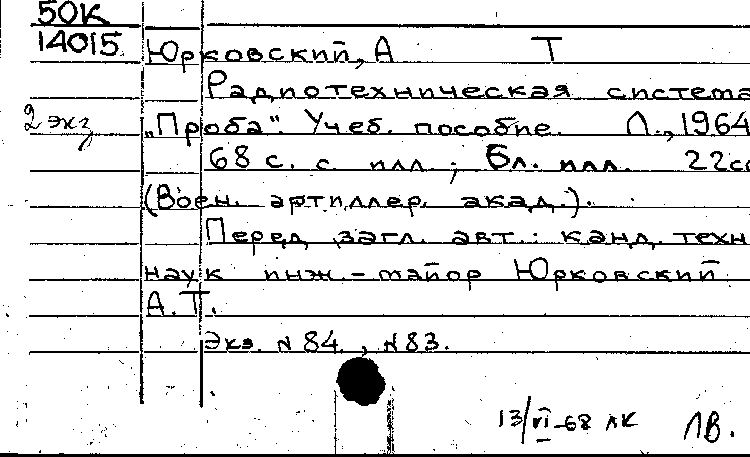 50К
14015 Юрковский, А Т
Радиотехническая система
2 экз „Проба". Учеб. пособие. Л., 1964
68 с. с илл.; Бл. илл. 22см
(Воен. артиллер. акад.).
Перед загл. авт.: канд. техн
наук инж.-майор Юрковский
А.Т.
Экз. N 84, N83.
13/VI-68 ЛК ЛВ.